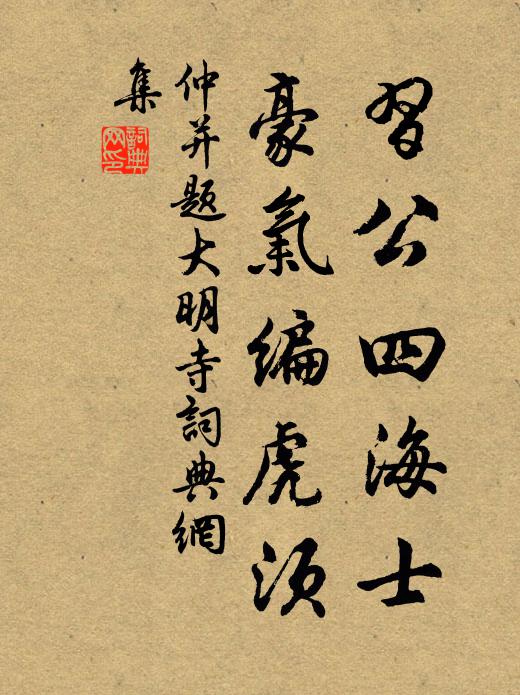 習公四海士
豪氣編虎須
仲并題大明寺詞典網
集
詞典網印